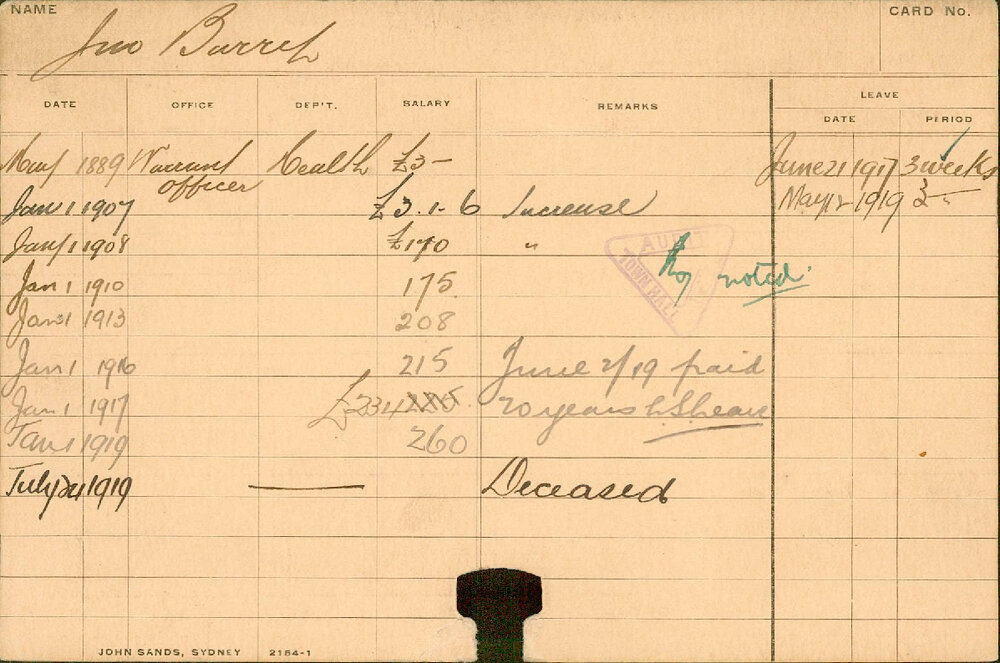 NAME
CARD No.
Jno Barrett
DATE OFFICE DEP'T. SALARY REMARKS LEAVE
DATE PERIOD
May 1889 Warrant officer Health £3- June 21 1917 3 weeks
Jan 1 1907 £3.1-6 Increase May 12 1919 3-
Jany 1 1908 £170 "
AUDIT
TOWN HALL
noted
Jan 1 1910 175
Jan 1 1913 208
Jan 1 1916 215 June 2/19 paid
Jan 1 1917 £234 20 years
Jan 1 1919 260
July 24 1919 — Deceased
JOHN SANDS, SYDNEY 2184-1